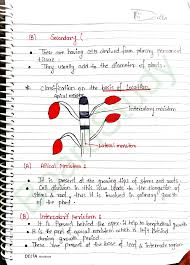 Delta
(B) Secondary :-
→ They are having cells derived from primary permanent tissue.
→ They usually add to the diameter of plants.
* Classification on the basis of location
apical meristem
Intercalary meristem
Lateral meristem
(A) Apical Meristem :
→ It is present at the growing tips of stems and roots.
→ Cell division in this zone leads to the elongation of stem & root, thus it is involved in primary growth of the plant.
(B) Intercalary Meristem :
→ It is present behind the apex. It help in longitudinal growth
→ It is the part of apical meristem which is left behind during growth period.
→ These are present at the base of leaf & internode region
DELTA